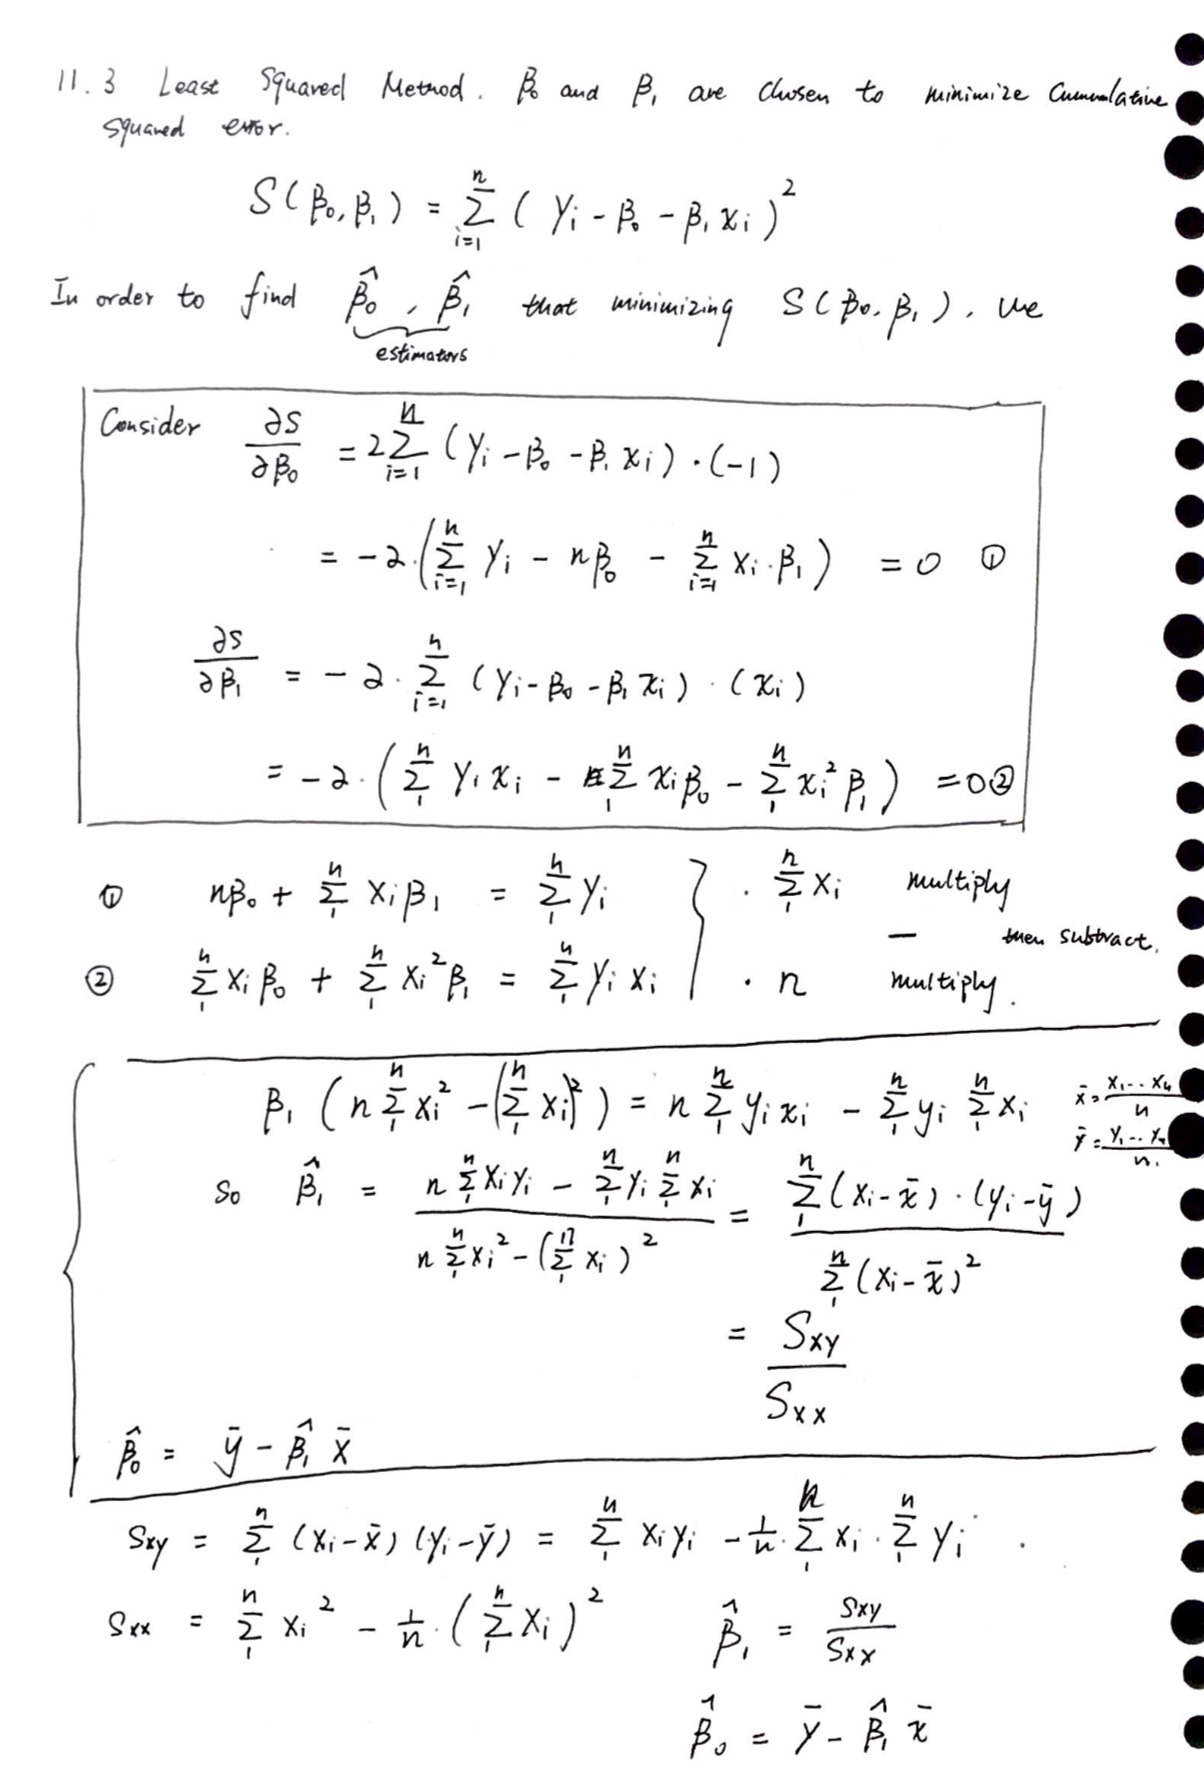 11.3 Least Squared Method. β₀ and β₁ are chosen to minimize Cummulative
squared error.
S(β₀, β₁) = Σ_{i=1}^{n} (yᵢ - β₀ - β₁xᵢ)²
In order to find β̂₀, β̂₁ that minimizing S(β₀, β₁), we
estimators
Consider ∂S/∂β₀ = 2Σ_{i=1}^{n} (yᵢ - β₀ - β₁xᵢ)·(-1)
= -2·(Σ_{i=1}^{n} yᵢ - nβ₀ - Σ_{i=1}^{n} xᵢ·β₁) = 0 ①
∂S/∂β₁ = -2·Σ_{i=1}^{n} (yᵢ - β₀ - β₁xᵢ)·(xᵢ)
= -2·(Σ_{1}^{n} yᵢxᵢ - Σ_{1}^{n} xᵢβ₀ - Σ_{1}^{n} xᵢ²β₁) = 0 ②
① nβ₀ + Σ_{1}^{n} xᵢβ₁ = Σ_{1}^{n} yᵢ } · Σ_{1}^{n} xᵢ multiply
— then subtract.
② Σ_{1}^{n} xᵢβ₀ + Σ_{1}^{n} xᵢ²β₁ = Σ_{1}^{n} yᵢxᵢ · n multiply.
β₁(nΣ_{1}^{n} xᵢ² - (Σ_{1}^{n} xᵢ)²) = nΣ_{1}^{n} yᵢxᵢ - Σ_{1}^{n} yᵢ Σ_{1}^{n} xᵢ
x̄ = (x₁...xₙ)/n
ȳ = (y₁...yₙ)/n.
So β̂₁ = (nΣ_{1}^{n} xᵢyᵢ - Σ_{1}^{n} yᵢ Σ_{1}^{n} xᵢ)/(nΣ_{1}^{n} xᵢ² - (Σ_{1}^{n} xᵢ)²) = (Σ_{1}^{n} (xᵢ - x̄)·(yᵢ - ȳ))/(Σ_{1}^{n} (xᵢ - x̄)²)
= Sxy/Sxx
β̂₀ = ȳ - β̂₁x̄
Sxy = Σ_{1}^{n} (xᵢ - x̄)(yᵢ - ȳ) = Σ_{1}^{n} xᵢyᵢ - 1/n·Σ_{1}^{n} xᵢ·Σ_{1}^{n} yᵢ.
Sxx = Σ_{1}^{n} xᵢ² - 1/n·(Σ_{1}^{n} xᵢ)² β̂₁ = Sxy/Sxx
β̂₀ = ȳ - β̂₁x̄